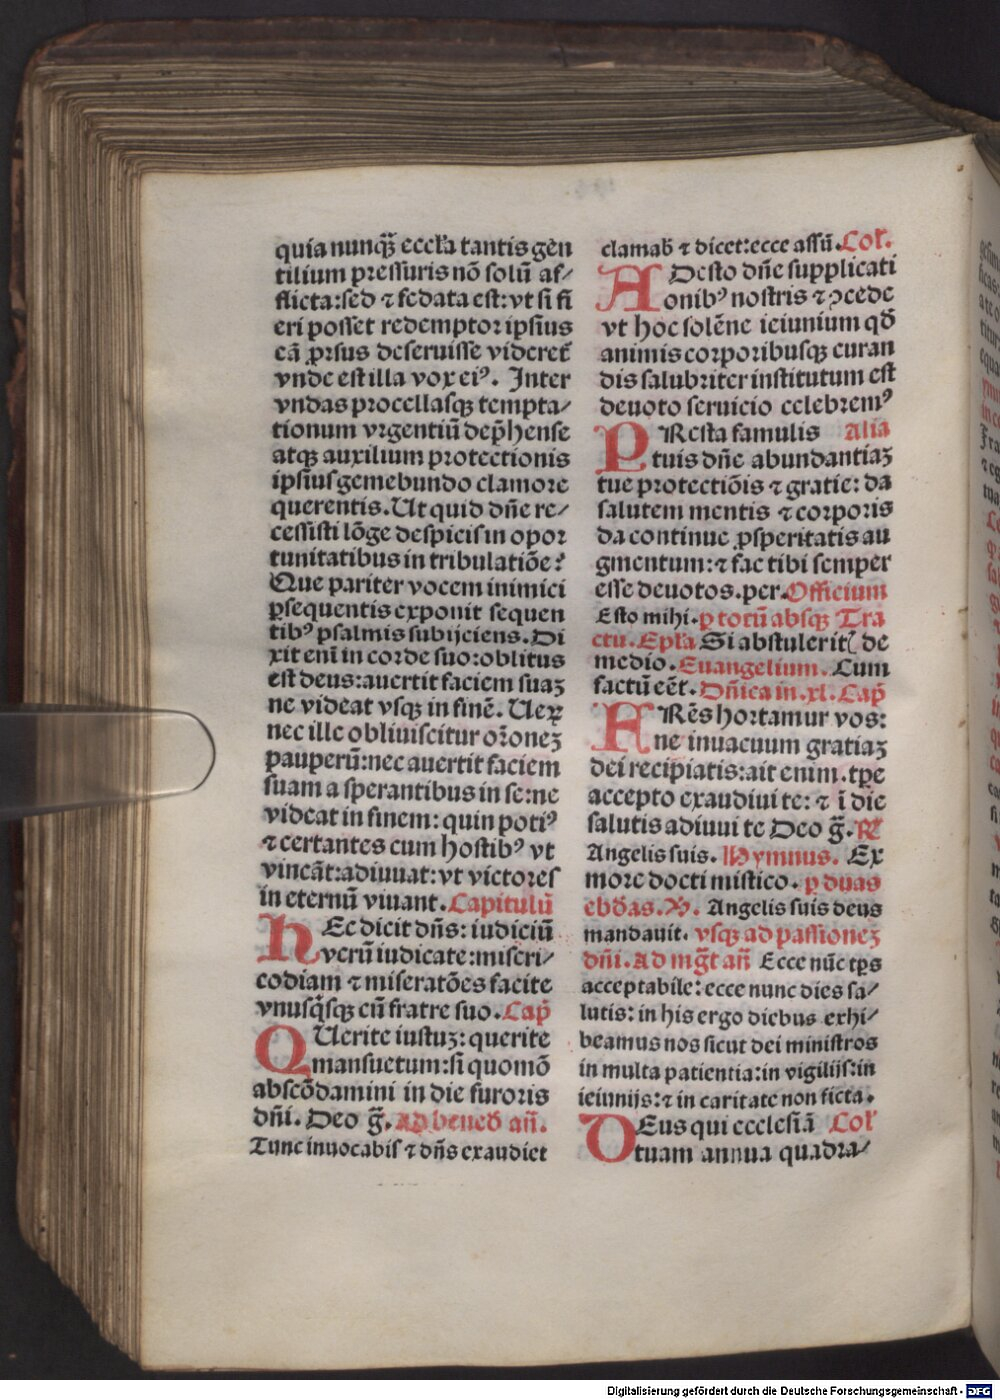 quia nunqͣ eccl̓a tantis gen
tilium pressuris nō solū af⸗
flicta: sed ⁊ fedata est: vt si fi
eri posset redemptor ipsius
eā ꝓrsus deseruisse videret̄
vnde est illa vox eiꝰ. Inter
vndas procellasqꝫ tempta⸗
tionum vrgentiū dep̄hense
atqꝫ auxilium protectionis
ipsius gemebundo clamore
querentis. Ut quid dn̄e re⸗
cessisti lōge despicis in opor
tunitatibus in tribulatiōe?
Que pariter vocem inimici
ꝑsequentis exponit sequen
tibꝰ psalmis subijciens. Di
xit enī in corde suo: oblitus
est deus: auertit faciem suaꝫ
ne videat vsqꝫ in finē. Ueꝝ
nec ille obliuiscitur or̄oneꝫ
pauperū: nec auertit faciem
suam a sperantibus in se: ne
videat in finem: quin potiꝰ
⁊ certantes cum hostibꝰ vt
vincāt: adiuuat: vt victores
in eternū viuant. Capitulū
HEc dicit dn̄s: iudiciū
verū iudicate: miseri⸗
codiam ⁊ miseratōes facite
vnusqͥsqꝫ cū fratre suo. Cap̄
QUerite iustuꝫ: querite
mansuetum: si quomō
abscōdamini in die furoris
dn̄i. Deo gr̄. Ad bened̄ an̄.
Tunc inuocabis ⁊ dn̄s exaudiet
clamab̄ ⁊ dicet: ecce assū. Col̓.
ADesto dn̄e supplicati
onibꝰ nostris ⁊ ꝯcede
vt hoc solēne ieiunium qd̄
animis corporibusqꝫ curan
dis salubriter institutum est
deuoto seruicio celebremꝰ
PResta famulis Alia
tuis dn̄e abundantiaꝫ
tue protectiōis ⁊ gratie: da
salutem mentis ⁊ corporis
da continue ꝓsperitatis au
gmentum: ⁊ fac tibi semper
esse deuotos. per. Officium
Esto mihi. ꝑ totū absqꝫ Tra
ctu. Epl̓a Si abstulerit de
medio. Euangelium. Cum
factū eēt. Dn̄ica in .xl. Cap̄
FRēs hortamur vos:
ne inuacuum gratiaꝫ
dei recipiatis: ait enim. tp̄e
accepto exaudiui te: ⁊ ī die
salutis adiuui te Deo gr̄. ℞
Angelis suis. Hymnus. Ex
more docti mistico. ꝑ duas
ebd̄as. ℣. Angelis suis deus
mandauit. vsqꝫ ad passioneꝫ
dn̄i. Ad mgt̄ an̄ Ecce nūc tp̄s
acceptabile: ecce nunc dies sa⸗
lutis: in his ergo diebus exhi⸗
beamus nos sicut dei ministros
in multa patientia: in vigilijs: in
ieiunijs: ⁊ in caritate non ficta.
DEus qui ecclesiā Col̓
tuam annua quadra⸗
Digitalisierung gefördert durch die Deutsche Forschungsgemeinschaft - DFG